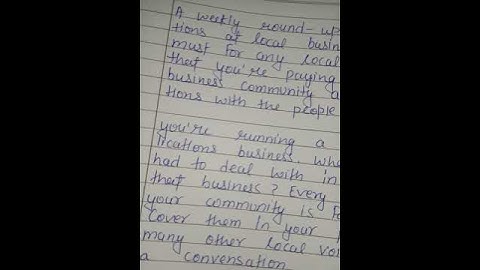 A weekly round-up
tions at local busin
must for any local
that you're paying
business community a
tions with the people
you're running a
lications business. Whe
had to deal with in
that business? Every
your community is fa
Cover them In your
many other local voi
a conversation